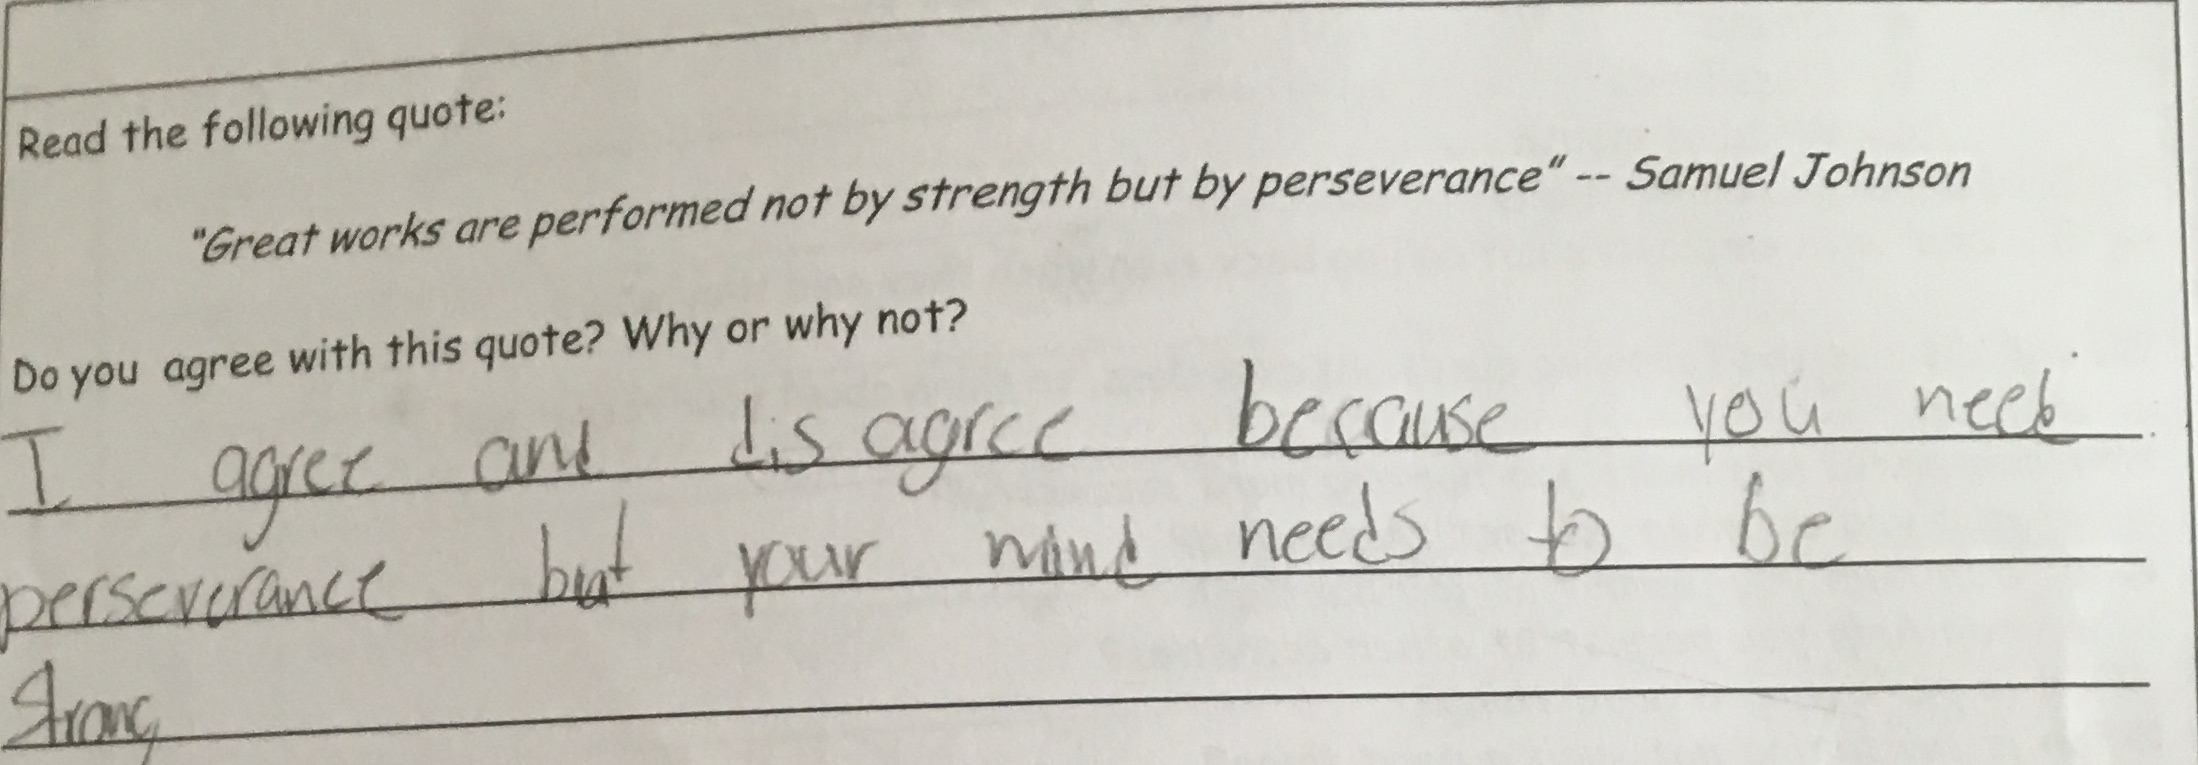 Read the following quote:
"Great works are performed not by strength but by perseverance" -- Samuel Johnson
Do you agree with this quote? Why or why not?
I agree and disagree because you need
perseverance but your mind needs to be
strong